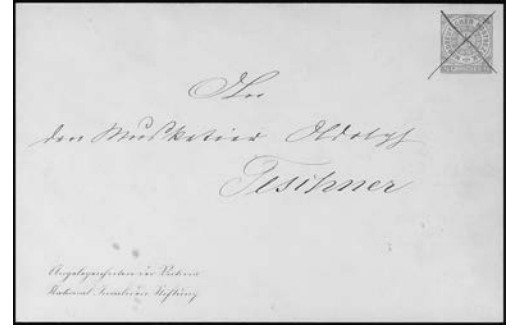 An
den Musketier Adolph
Teschner
Angelegenheiten der Victoria
National-Invaliden-Stiftung